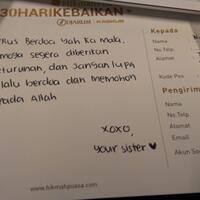 #30HARIKEBAIKAN
DJARUM
rus Berdoa yah Ka mala,
moga segera diberikan
eturunan, dan jangan lupa
lalu berdoa dan memohon
pada Allah
xoxo,
your sister ♥
Kepada
Nama
No.Telp.
Alamat
Kode Pos
Pengirim
Nama
No.Telp.
Alamat
Email
Akun Sos
www.hikmahpuasa.com